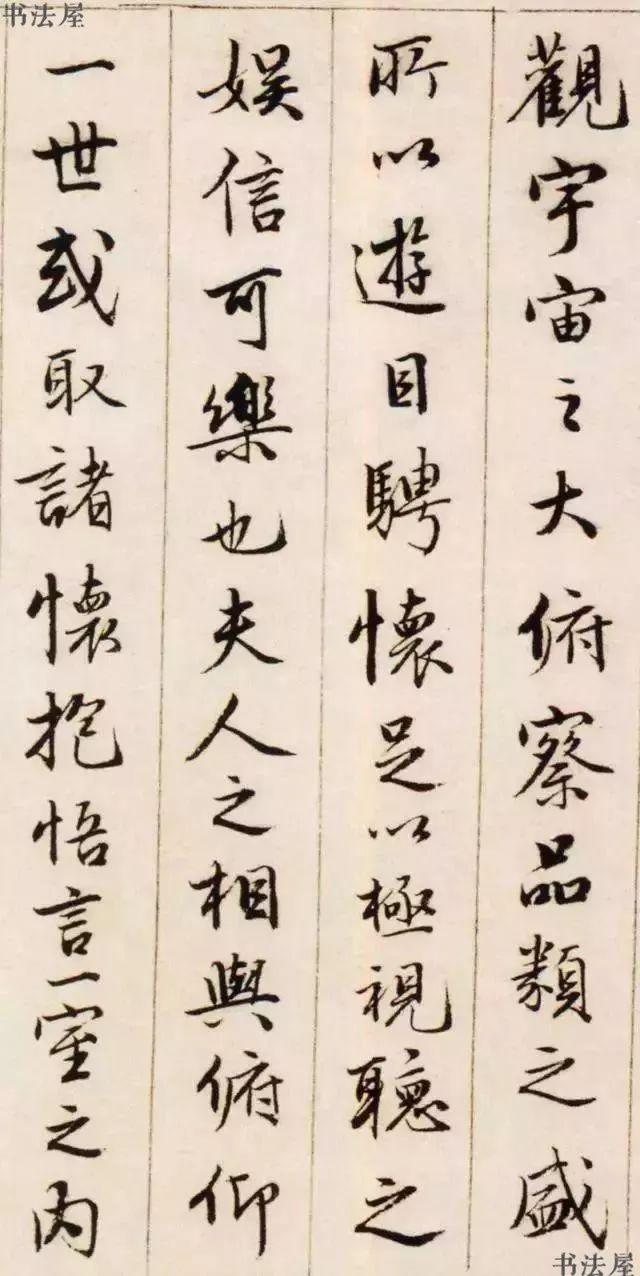 书法屋
觀宇宙之大俯察品類之盛
所以遊目騁懷足以極視聽之
娛信可樂也夫人之相與俯仰
一世或取諸懷抱悟言一室之內
书法屋